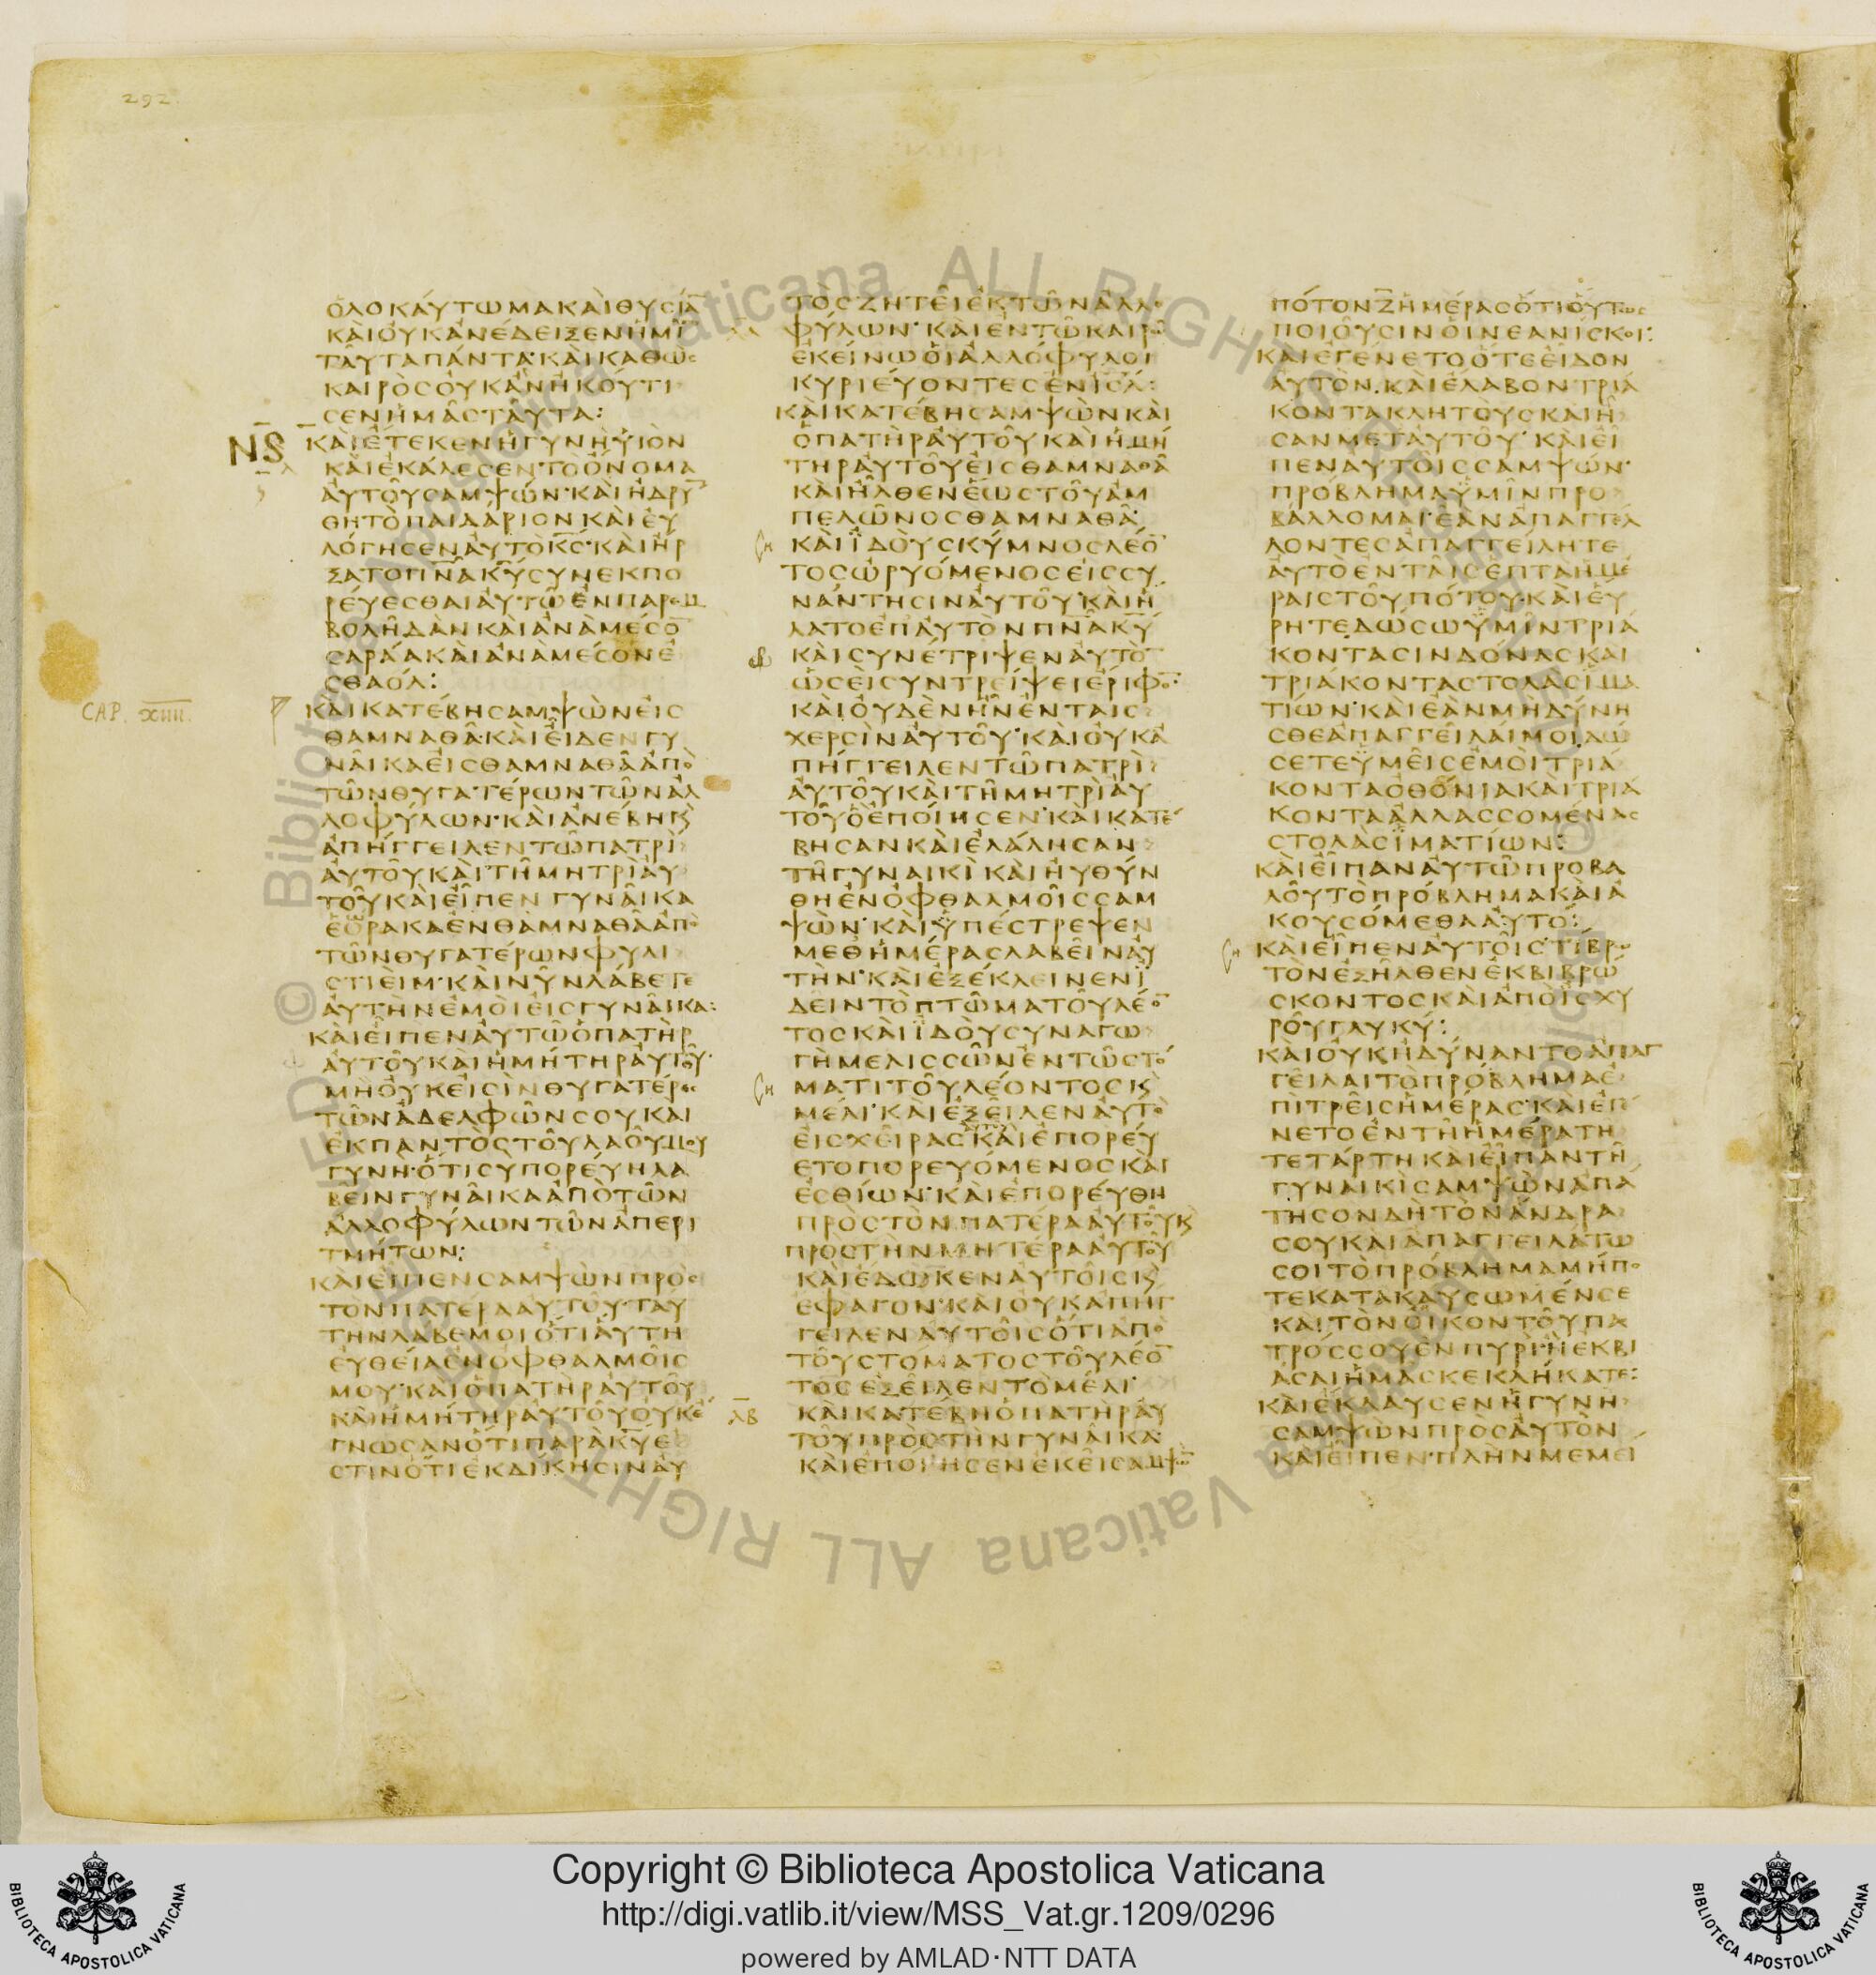 292
ὉΛΟΚΑΎΤΩΜΑΚΑῚΘΥΣΊΑ̅
ΚΑῚΟΥ̓ΚἈΝΈΔΕΙΞΕΝἩΜΙ̅
ΤΑΥ͂ΤΑΠΆΝΤΑ·ΚΑῚΚΑΘΩΣ
ΚΑΙΡῸΣΟΥ̓ΚἊΝἨΚΟΎΤΙ
ΣΕΝἩΜΑ͂ΣΤΑΥ͂ΤΑ:
ΝϚ ΚΑῚἜΤΕΚΕΝἩΓΥΝῊΥἹῸΝ
ΚΑῚἘΚΆΛΕΣΕΝΤῸὌΝΟΜΑ
ΑΥ̓ΤΟΥ͂ΣΑΜΨΏΝ·ΚΑῚἩΔΡΥ̅
ΘΗΤῸΠΑΙΔΆΡΙΟΝΚΑῚΕΥ̓
ΛΌΓΗΣΕΝΑΥ̓ΤῸΚ̅Σ̅·ΚΑῚἬΡ
ΞΑΤΟΠ̅Ν̅Α̅Κ̅Υ̅ΣΥΝΕΚΠΟ
ΡΕΎΕΣΘΑΙΑΥ̓ΤΩ͂ἘΝΠΑΡΕΜ
ΒΟΛΗ͂ΔᾺΝΚΑῚἈΝᾺΜΈΣΟ̅
ΣΑΡΆΑΚΑῚἈΝᾺΜΈΣΟΝἘ
ΣΘΑΌΛ:
CAP. XIIII. ΚΑῚΚΑΤΈΒΗΣΑΜΨῺΝΕἸΣ
ΘΑΜΝΑΘᾺ·ΚΑῚΕἾΔΕΝΓΥ
ΝΑΙ͂ΚΑΕἸΣΘΑΜΝΑΘᾺἈΠῸ
ΤΩ͂ΝΘΥΓΑΤΈΡΩΝΤΩ͂ΝἈΛ
ΛΟΦΎΛΩΝ·ΚΑῚἈΝΈΒΗϏ
ἈΠΉΓΓΕΙΛΕΝΤΩ͂ΠΑΤΡῚ
ΑΥ̓ΤΟΥ͂ΚΑῚΤΗ͂ΜΗΤΡῚΑΥ̓
ΤΟΥ͂ΚΑῚΕἾΠΕΝΓΥΝΑΙ͂ΚΑ
ἙΌΡΑΚΑἘΝΘΑΜΝΑΘᾺἈΠῸ
ΤΩ͂ΝΘΥΓΑΤΈΡΩΝΦΥΛΙ
ΣΤΙΕΊΜ·ΚΑῚΝΥ͂ΝΛΆΒΕΤΕ
ΑΥ̓ΤῊΝἘΜΟῚΕἸΣΓΥΝΑΙ͂ΚΑ:
ΚΑῚΕἾΠΕΝΑΥ̓ΤΩ͂ὉΠΑΤῊΡ
ΑΥ̓ΤΟΥ͂ΚΑῚἩΜΉΤΗΡΑΥ̓ΤΟΥ͂·
ΜῊΟΥ̓ΚΕἸΣῚΝΘΥΓΑΤΈΡΕΣ
ΤΩ͂ΝἈΔΕΛΦΩ͂ΝΣΟΥΚΑΙ
ἘΚΠΑΝΤῸΣΤΟΥ͂ΛΑΟΥ͂ΜΟΥ
ΓΥΝΗ·ὍΤΙΣΥΠΟΡΕΎΗΛΑ
ΒΕΙ͂ΝΓΥΝΑΙ͂ΚΑἈΠῸΤΩ͂Ν
ἈΛΛΟΦΎΛΩΝΤΩ͂ΝἈΠΕΡΙ
ΤΜΉΤΩΝ:
ΚΑῚΕἾΠΕΝΣΑΜΨῺΝΠΡῸΣ
ΤῸΝΠΑΤΈΡΑΑΥ̓ΤΟΥ͂·ΤΑΥ
ΤΗΝΛΆΒΕΜΟΙὍΤΙΑὝΤΗ
ΕΥ̓ΘΕΙ͂ΑἘΝὈΦΘΑΛΜΟΙ͂Σ
ΜΟΥ·ΚΑῚὉΠΑΤῊΡΑΥ̓ΤΟΥ͂
ΚΑῚἩΜΉΤΗΡΑΥ̓ΤΟΥ͂ΟΥ̓ΚἜ
ΓΝΩΣΑΝὍΤΙΠΑΡᾺΚ̅Υ̅Ἐ
ΣΤΙΝὍΤΙἘΚΔΙΚΗΣΙΝΑΥ̓
ΤῸΣΖΗΤΕΙ͂ἘΚΤΩ͂ΝἈΛΛΟ
ΦΎΛΩΝ·ΚΑῚἘΝΤΩ͂ΚΑΙΡΩ͂
ἘΚΕΊΝΩΟἹἈΛΛΌΦΥΛΟΙ
ΚΥΡΙΕΎΟΝΤΕΣἘΝΙ̅Σ̅Λ̅:
ΚΑῚΚΑΤΈΒΗΣΑΜΨῺΝΚΑῚ
ὉΠΑΤῊΡΑΥ̓ΤΟΥ͂ΚΑῚἩΜΉ
ΤΗΡΑΥ̓ΤΟΥ͂ΕἸΣΘΑΜΝΑΘᾺ
ΚΑῚἨΛΘΕΝἝΩΣΤΟΥ͂ἈΜ
ΠΕΛΩ͂ΝΟΣΘΑΜΝΑΘᾺ·
ΚΑῚἸΔΟῪΣΚΎΜΝΟΣΛΈΟ̅
ΤΟΣὨΡΥΌΜΕΝΟΣΕἸΣΣΥ
ΝΆΝΤΗΣΙΝΑΥ̓ΤΟΥ͂·ΚΑῚἭ
ΛΑΤΟἘΠΑΥ̓ΤῸΝΠ̅Ν̅Α̅Κ̅Υ̅
ΚΑῚΣΥΝΈΤΡΙΨΕΝΑΥ̓ΤΟ̅
ὩΣΕῚΣΥΝΤΡΕΊΨΕΙἘΡΙΦΟ̅·
ΚΑῚΟΥ̓ΔῈΝἮΝἘΝΤΑΙΣ
ΧΕΡΣῚΝΑΥ̓ΤΟΥ͂·ΚΑῚΟΥ̓ΚἈ
ΠΉΓΓΕΙΛΕΝΤΩ͂ΠΑΤΡῚ
ΑΥ̓ΤΟΥ͂ΚΑῚΤΗ͂ΜΗΤΡῚΑΥ̓
ΤΟΥ͂ὋἘΠΟΊΗΣΕΝ·ΚΑῚΚΑΤΈ
ΒΗΣΑΝΚΑῚἘΛΆΛΗΣΑΝ
ΤΗ͂ΓΥΝΑΙΚῚΚΑῚἨΥΘΎΝ
ΘΗἘΝὈΦΘΑΛΜΟΙ͂ΣΣΑΜ
ΨῺΝ·ΚΑῚΫΠΈΣΤΡΕΨΕΝ
ΜΕΘἩΜΈΡΑΣΛΑΒΕΙ͂ΝΑΥ̓
ΤῊΝ·ΚΑῚἘΞΈΚΛΕΙΝΕΝἸ
ΔΕΙΝΤῸΠΤΩ͂ΜΑΤΟΥ͂ΛΈΟ̅
ΤΟΣΚΑῚἸΔΟῪΣΥΝΑΓΩ
ΓῊΜΕΛΙΣΣΩ͂ΝἘΝΤΩ͂ΣΤΌ
ΜΑΤΙΤΟΥ͂ΛΈΟΝΤΟΣϏ
ΜΈΛΙ·ΚΑῚἘΞΕΙ͂ΛΕΝΑΥ̓ΤῸ
ΕἸΣΧΕΙ͂ΡΑΣΚΑῚἘΠΟΡΕΎ
ΕΤΟΠΟΡΕΥΌΜΕΝΟΣΚΑῚ
ἘΣΘΊΩΝ·ΚΑῚἘΠΟΡΕΎΘΗ
ΠΡῸΣΤῸΝΠΑΤΈΡΑΑΥ̓ΤΟΥ͂Ϗ
ΠΡῸΣΤῊΝΜΗΤΈΡΑΑΥ̓ΤΟΥ͂
ΚΑῚἜΔΩΚΕΝΑΥ̓ΤΟΙ͂ΣϏ
ἘΦΑΓΟΝ·ΚΑῚΟΥ̓ΚΑΠΗΓ
ΓΕΙΛΕΝΑΥ̓ΤΟΙ͂ΣὍΤΙἈΠῸ
ΤΟΥ͂ΣΤΌΜΑΤΟΣΤΟΥ͂ΛΈΟ̅
ΤΟΣἘΞΕΙ͂ΛΕΝΤῸΜΈΛΙ·
ΛΒ ΚΑῚΚΑΤΈΒΗὉΠΑΤῊΡΑΥ̓
ΤΟΥ͂ΠΡῸΣΤῊΝΓΥΝΑΙ͂ΚΑ·
ΚΑῚἘΠΟΊΗΣΕΝἘΚΕΙ͂ΣΑΜΨΩ̅
ΠΌΤΟΝΖ̅ἩΜΈΡΑΣὍΤΙΟὝΤΩΣ
ΠΟΙΟΥ͂ΣΙΝΟἹΝΕΑΝΊΣΚΟΙ:
ΚΑῚἘΓΈΝΕΤΟὍΤΕΕἾΔΟΝ
ΑΥ̓ΤῸΝ·ΚΑῚἜΛΑΒΟΝΤΡΙΆ
ΚΟΝΤΑΚΛΗΤΟῪΣΚΑῚἮ
ΣΑΝΜΕΤΑΥ̓ΤΟΥ͂·ΚΑῚΕἾ
ΠΕΝΑΥ̓ΤΟΙ͂ΣΣΑΜΨΏΝ·
ΠΡΌΒΛΗΜΑΫΜΙ͂ΝΠΡΟ
ΒΆΛΛΟΜΑΙ·ἘᾺΝἈΠΑΓΓΈΛ
ΛΟΝΤΕΣἈΠΑΓΓΕΊΛΗΤΕ
ΑΥ̓ΤῸἘΝΤΑΙ͂ΣἙΠΤᾺἩΜΈ
ΡΑΙΣΤΟΥ͂ΠΌΤΟΥ·ΚΑῚΕὝ
ΡΗΤΕΔΏΣΩΫΜΙ͂ΝΤΡΙΆ
ΚΟΝΤΑΣΙΝΔΌΝΑΣΚΑΙ
ΤΡΙΆΚΟΝΤΑΣΤΟΛᾺΣἹΜΑ
ΤΊΩΝ·ΚΑῚἘᾺΝΜῊΔΎΝΗ
ΣΘΕἈΠΑΓΓΕΙ͂ΛΑΊΜΟΙΔΏ
ΣΕΤΕΫΜΕΙ͂ΣἘΜΟῚΤΡΙΆ
ΚΟΝΤΑὈΘΌΝΙΑΚΑῚΤΡΙΆ
ΚΟΝΤΑἈΛΛΑΣΣΟΜΈΝΑΣ
ΣΤΟΛᾺΣἹΜΑΤΊΩΝ:
ΚΑῚΕἾΠΑΝΑΥ̓ΤΩ͂ΠΡΟΒΑ
ΛΟΥ͂ΤῸΠΡΌΒΛΗΜΑΚΑῚἈ
ΚΟΥΣΌΜΕΘΑΑΥ̓ΤΌ:
ΚΑῚΕἾΠΕΝΑΥ̓ΤΟΙ͂Σ·ΤΊΒΡΩ
ΤῸΝἘΞΗ͂ΛΘΕΝἘΚΒΙΒΡΏ
ΣΚΟΝΤΟΣΚΑῚἈΠῸἸΣΧΥ
ΡΟΥ͂ΓΛΥΚΎ:
ΚΑῚΟΥ̓ΚἨΔΎΝΑΝΤΟἈΠΑΓ
ΓΕΙ͂ΛΑΙΤῸΠΡΌΒΛΗΜΑἘ
ΠῚΤΡΕΙ͂ΣἩΜΈΡΑΣ·ΚΑῚἘΓΈ
ΝΕΤΟἘΝΤΗ͂ἩΜΈΡΑΤΗ
ΤΕΤΆΡΤΗΚΑῚΕἾΠΑΝΤΗ͂
ΓΥΝΑΙΚῚΣΑΜΨῺΝἈΠΆ
ΤΗΣΟΝΔῊΤῸΝἌΝΔΡΑ
ΣΟΥΚΑῚἈΠΑΓΓΕΙΛΆΤΩ
ΣΟΙΤῸΠΡΌΒΛΗΜΑΜΉΠΟ
ΤΕΚΑΤΑΚΑΎΣΩΜΈΝΣΕ
ΚΑῚΤῸΝΟἾΚΟΝΤΟΥ͂ΠΑ
ΤΡΌΣΣΟΥἘΝΠΥΡΊ·ἪἘΚΒΙ
ΆΣΑΙἩΜΑ͂ΣΚΕΚΛΉΚΑΤΕ:
ΚΑῚἜΚΛΑΥΣΕΝἩΓΥΝῊ
ΣΑΜΨῺΝΠΡῸΣΑΥ̓ΤῸΝ
ΚΑῚΕἾΠΕΝ·ΠΛῊΝΜΕΜΕΊ
Copyright © Biblioteca Apostolica Vaticana
http://digi.vatlib.it/view/MSS_Vat.gr.1209/0296
powered by AMLAD·NTT DATA
BIBLIOTECA APOSTOLICA VATICANA
BIBLIOTECA APOSTOLICA VATICANA